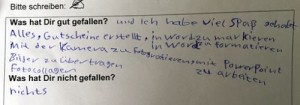 Bitte schreiben:
Was hat Dir gut gefallen? und ich habe viel Spaß gehabt
Alles, Gutscheine erstellt, in Word zu markieren
Mit der Kamera zu fotografieren, in Word formatieren
Bilder zu übertragen mit PowerPoint
Fotocollagen zu arbeiten
Was hat Dir nicht gefallen?
nichts